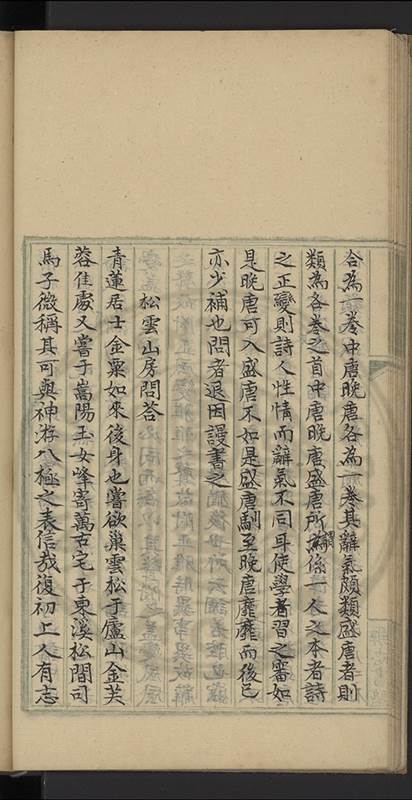 合為一卷中唐晚唐各為一卷其辭氣頗類盛唐者則
類為各卷之首中唐晚唐盛唐所係一人之本者詩
之正變則詩人性情而辭氣不同耳使學者習之審如
是晚唐可入盛唐不如是盛唐劚至晚唐靡靡而後已
亦少補也問者退因謾書之
松雲山房問荅
青蓮居士金粟如來後身也嘗欲巢雲松于廬山金芙
蓉佳處又嘗于嵩陽玉女峰寄萬古宅于東溪松間司
馬子微稱其可與神游八極之表信哉復初上人有志